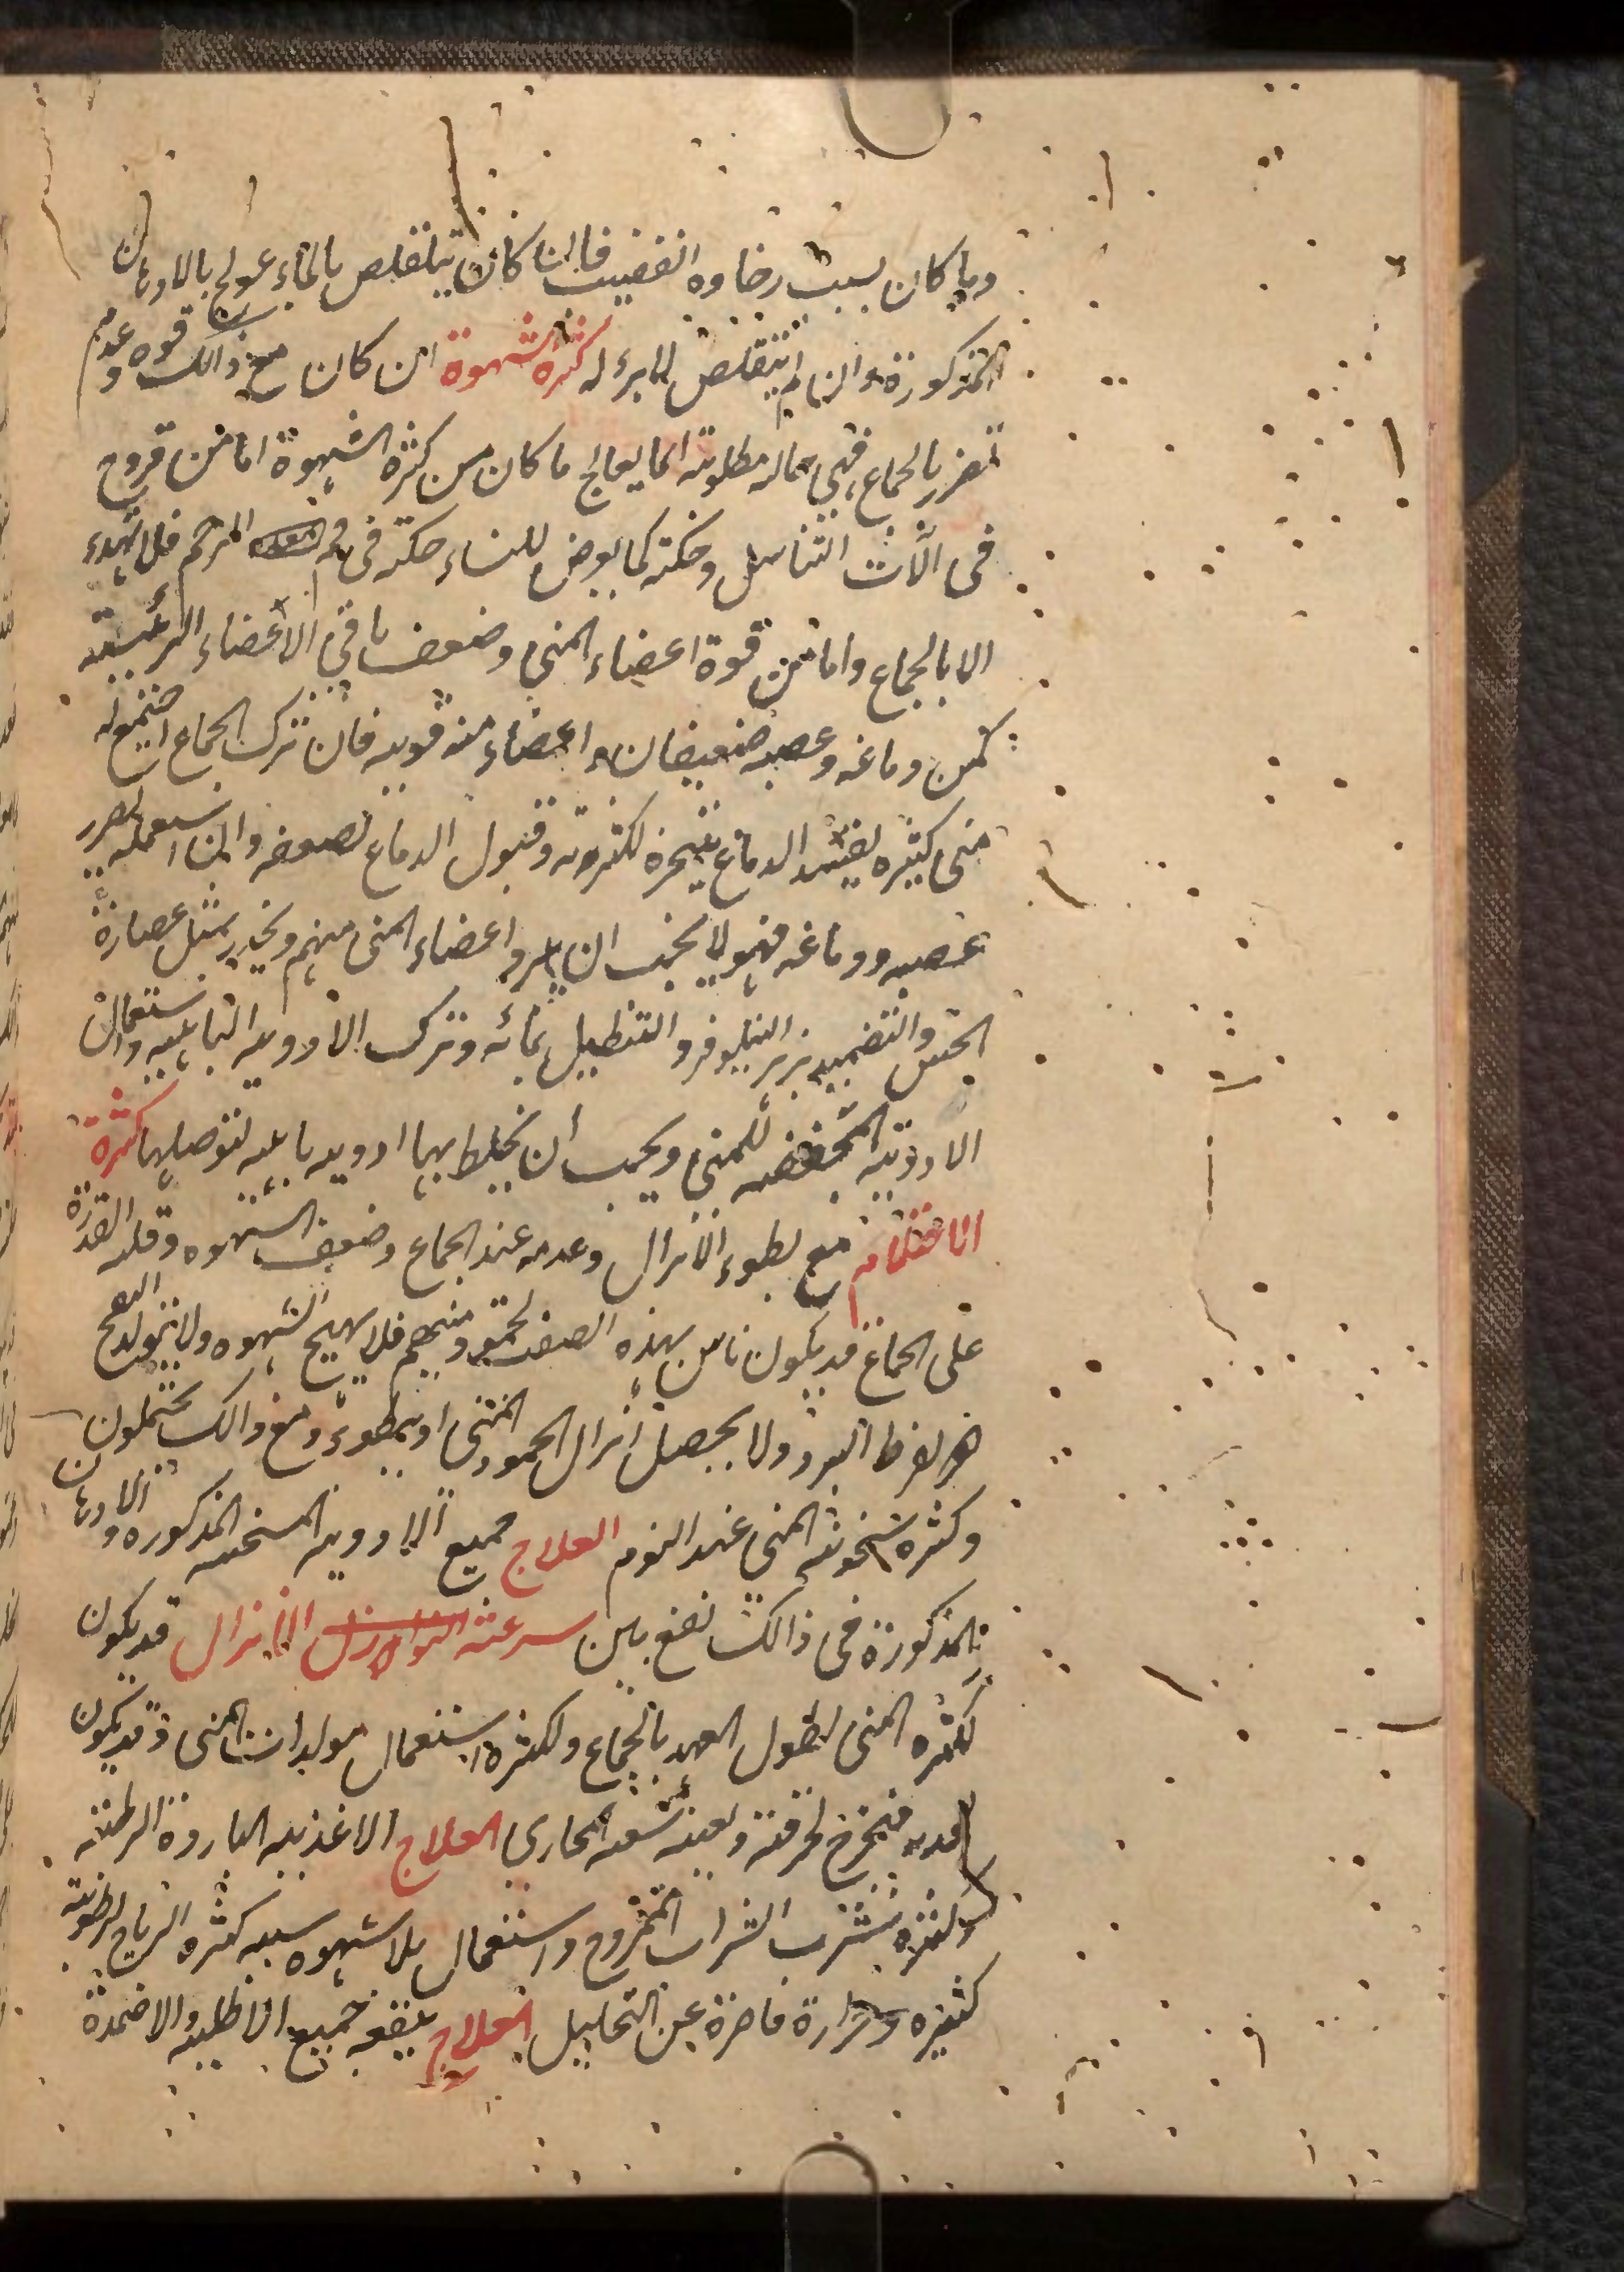 وما كان بسبب رخاوه القضيب فان كان يتقلص بالماء عولج بالادهان
المذكورة وان لم يتقلص لابرء له كثرة الشهوة ان كان مع ذالك قوه وعدم
تضرر بالجماع فهى حاله مطلوبة انما يعالج ما كان من كثرة الشهوة اما من قروح
فى الآت التناسل وحكة كما يعرض للنساء حكة فى فم الرحم فلا تهدء
الا بالجماع واما من قوة اعضاء المنى وضعف باقى الاعضاء الرئيسة
كمن دماغه وعصبه ضعيفان واعضاء منيه قويه فان ترك الجماع اجتمع له
منى كثيره يفسد الدماغ بتبخره لكثرته وقبول الدماغ لضعفه وان استعمله تضرر
عصبه ودماغه فهولا يجب ان يبرد اعضاء المنى منهم ويخدر بمثل عصارة
الخس والتضميد بزر النيلوفر والتنطيل بمائه وترك الادويه الباهيه واستعمال
الادوية المجففه للمنى ويجب أن يخلط بها ادويه باهيه لتوصلها كثرة
الاحتلام مع بطوء الانزال وعدمه عند الجماع وضعف الشهوه وقلة القدرة
على الجماع قد يكون ناس بهذه الصفة لجمود منيهم فلا يهيج الشهوه ولا يتولد
لفرط البرد ولا يحصل أنزال لجمود المنى او يبطوء ومع ذالك يحتملون
وكثره سخونة المنى عند النوم العلاج جميع الادويه المسخنه المذكوره والادهان
المذكورة فى ذالك نفع بين سرعة الانزال قد يكون
لكثره المنى لطول العهد بالجماع ولكثرة استعمال مولدات المنى وقد يكون
فيخرج لحرقته ولعنه المجارى العلاج الاغذيه الباردة الرطبة
شرب الشراب الممزوج واستعمال بلا شهوه سببه كثرة الرياح لرطوبة
كثيره وحرارة قاصرة عن التحليل العلاج ينفعه جميع الاطليه والاضمدة